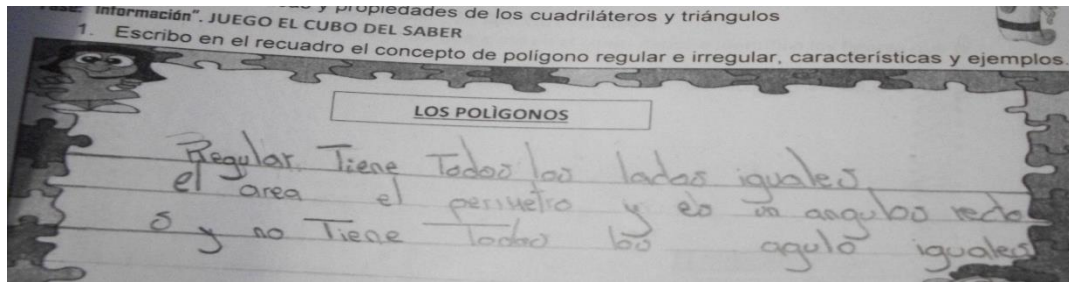 y propiedades de los cuadriláteros y triángulos
Información". JUEGO EL CUBO DEL SABER
1. Escribo en el recuadro el concepto de polígono regular e irregular, características y ejemplos.
LOS POLÌGONOS
Regular. Tiene Todos los lados iguales,
el area el perimetro y es un angulos recto
s y no Tiene Todos los agulo iguales